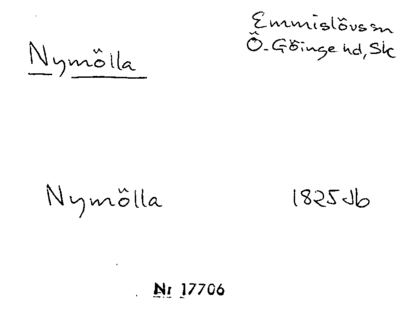 Emmislövs sn
Nymölla
Ö. Göinge hd, Sk
Nymölla 1825 Jb
Nr 17706